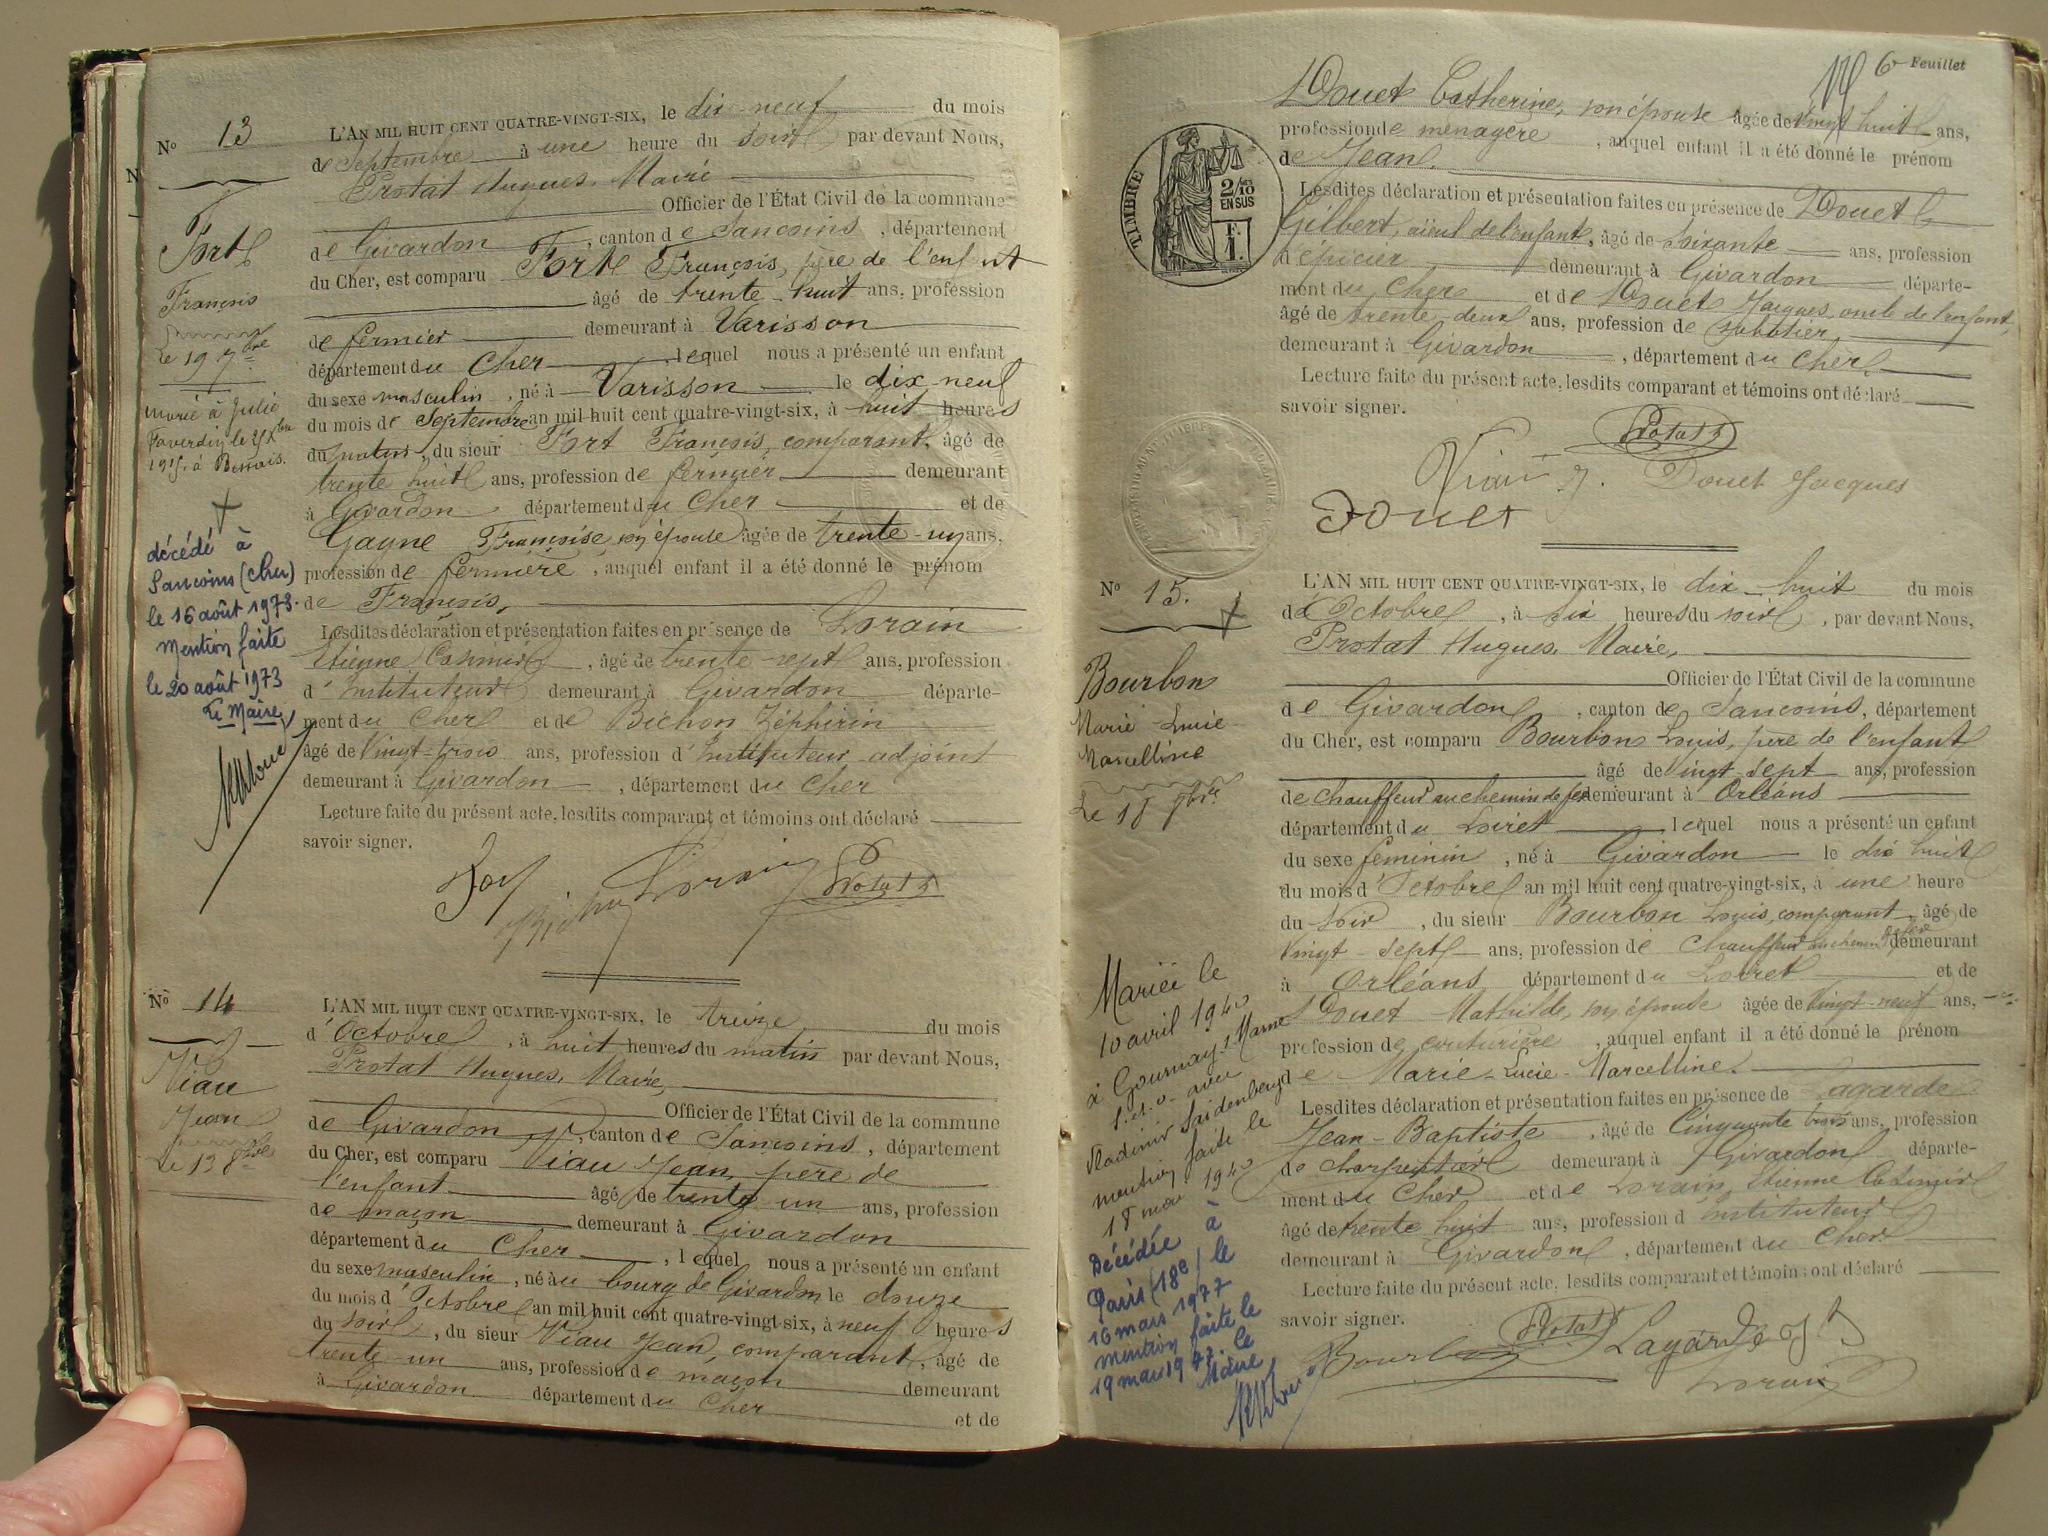 N° 13
Fort
François
Le 19 7bre
marié à Julie
Faverdin le 27 Xbre
1915 à Bessais.
décédé à
Sancoins (Cher)
le 16 août 1973.
mention faite
le 20 août 1973
Le Maire,
L'AN MIL HUIT CENT QUATRE-VINGT-SIX, le dix-neuf du mois
de Septembre à une heure du soir par devant Nous,
Protat Hugues, Maire
Officier de l'État Civil de la commune
de Givardon, canton de Sancoins, département
du Cher, est comparu Fort François, père de l'enfant
âgé de trente-huit ans, profession
de fermier demeurant à Varisson
département du Cher, lequel nous a présenté un enfant
du sexe masculin, né à Varisson le dix-neuf
du mois de Septembre an mil huit cent quatre-vingt-six, à huit heures
du matin, du sieur Fort François, comparant, âgé de
trente huit ans, profession de fermier demeurant
à Givardon département du Cher et de
Gagne Françoise, son épouse âgée de trente-un ans,
profession de fermière, auquel enfant il a été donné le prénom
de François,
Lesdites déclaration et présentation faites en présence de Lorain
Etienne Casimir, âgé de trente-sept ans, profession
d'Instituteur demeurant à Givardon départe-
ment du Cher et de Bichon Zéphirin
âgé de Vingt-trois ans, profession d'Instituteur adjoint
demeurant à Givardon, département du Cher
Lecture faite du présent acte, lesdits comparant et témoins ont déclaré
savoir signer.
Fort Bichon Lorain Protat
N° 14
Viau
Jean
Le 13 8bre
L'AN MIL HUIT CENT QUATRE-VINGT-SIX, le treize du mois
d'Octobre, à huit heures du matin par devant Nous,
Protat Hugues, Maire,
Officier de l'État Civil de la commune
de Givardon, canton de Sancoins, département
du Cher, est comparu Viau Jean, père de
l'enfant âgé de trente un ans, profession
de maçon demeurant à Givardon
département du Cher, lequel nous a présenté un enfant
du sexe masculin, né au bourg de Givardon le douze
du mois d'Octobre an mil huit cent quatre-vingt-six, à neuf heures
du soir, du sieur Viau Jean, comparant, âgé de
trente-un ans, profession de maçon demeurant
à Givardon département du Cher et de
6e Feuillet
Douet Catherine, son épouse âgée de vingt huit ans,
profession de ménagère, auquel enfant il a été donné le prénom
de Jean.
TIMBRE
2/10
EN SUS
1 F.
Lesdites déclaration et présentation faites en présence de Douet
Gilbert, aïeul de l'enfant, âgé de soixante ans, profession
d'épicier demeurant à Givardon départe-
ment du Cher et de Douet Jacques, oncle de l'enfant,
âgé de trente-deux ans, profession de sabotier
demeurant à Givardon, département du Cher.
Lecture faite du présent acte, lesdits comparant et témoins ont déclaré
savoir signer.
Protat
Viau J. Douet Jacques
Douet
N° 15.
Bourbon
Marie-Lucie
Marcelline
Le 18 8bre
Mariée le
10 avril 1940
à Gournay s. Marne
S. et O. avec
Vladimir Saidenberg
mention faite le
18 mai 1940
Décédée à
Paris (18e) le
16 mars 1977
mention faite le
19 mars 1977. Le
Maire
L'AN MIL HUIT CENT QUATRE-VINGT-SIX, le dix-huit du mois
d'Octobre, à six heures du soir, par devant Nous,
Protat Hugues, Maire,
Officier de l'État Civil de la commune
de Givardon, canton de Sancoins, département
du Cher, est comparu Bourbon Louis, père de l'enfant
âgé de vingt-sept ans, profession
de chauffeur au chemin de fer demeurant à Orléans
département du Loiret lequel nous a présenté un enfant
du sexe féminin, né à Givardon le dix huit
du mois d'Octobre an mil huit cent quatre-vingt-six, à une heure
du soir, du sieur Bourbon Louis, comparant, âgé de
vingt-sept ans, profession de chauffeur au chemin de fer demeurant
à Orléans département du Loiret et de
Douet Mathilde, son épouse âgée de Vingt-neuf ans,
profession de couturière, auquel enfant il a été donné le prénom
de Marie-Lucie-Marcelline.
Lesdites déclaration et présentation faites en présence de Lagarde
Jean-Baptiste, âgé de Cinquante trois ans, profession
de charpentier demeurant à Givardon départe-
ment du Cher et de Lorain, Etienne Casimir
âgé de trente huit ans, profession d'Instituteur
demeurant à Givardon, département du Cher
Lecture faite du présent acte, lesdits comparant et témoins ont déclaré
savoir signer.
Protat
Bourbon Lagarde J B
Lorain